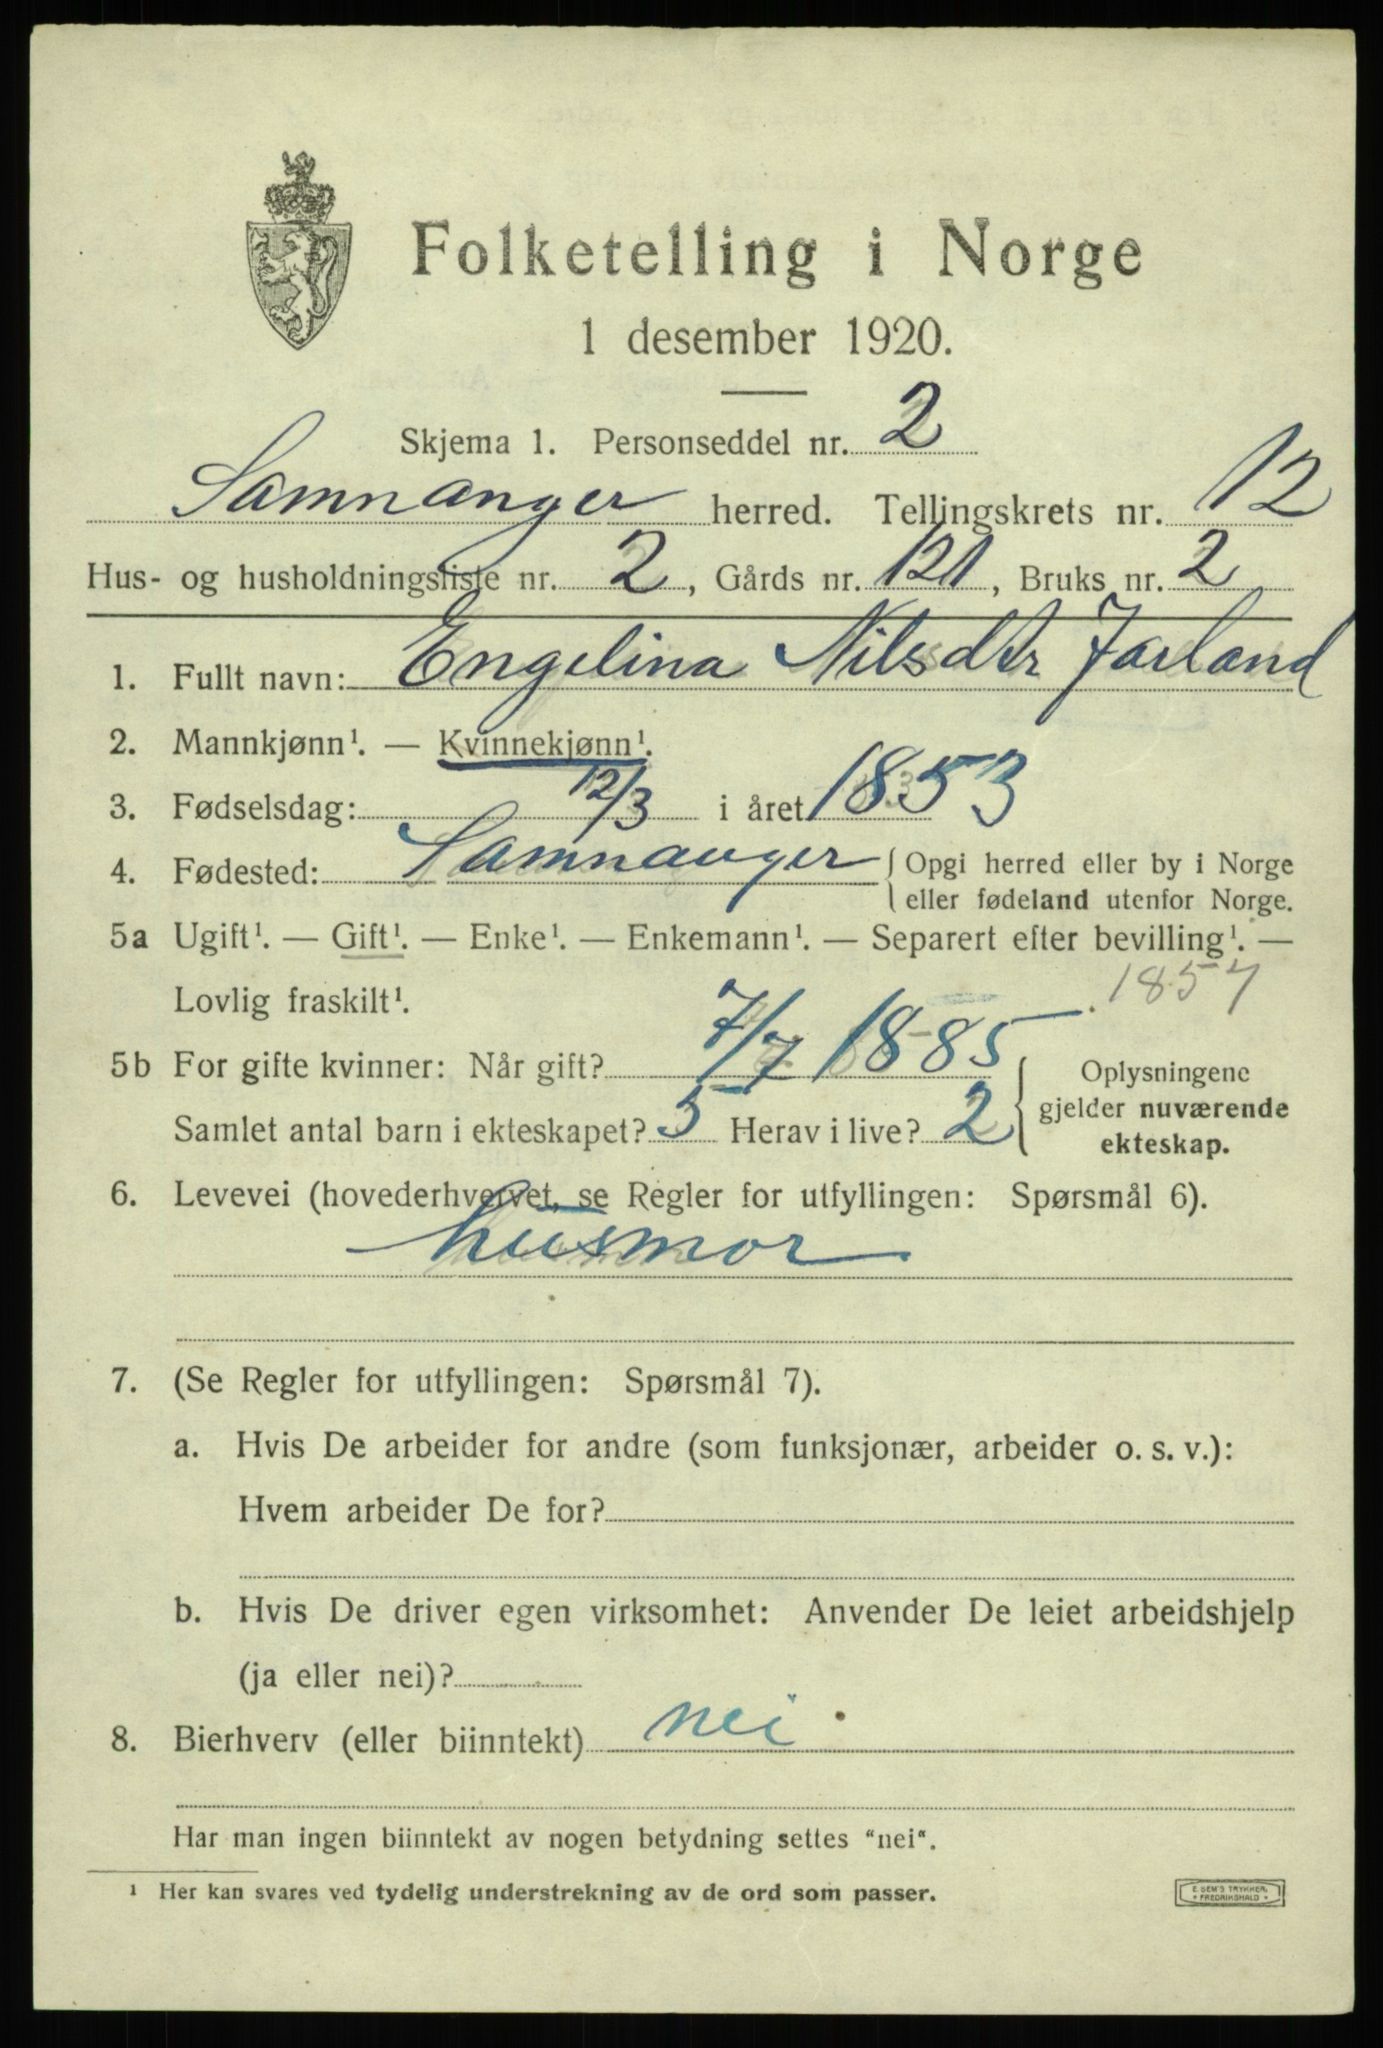 Folketelling i Norge
1 desember 1920.
Skjema 1. Personseddel nr. 2
Samnanger herred. Tellingskrets nr. 12
Hus- og husholdningsliste nr. 2, Gårds nr. 121, Bruks nr. 2
1. Fullt navn: Engelina Nilsdtr Jarland
2. Mannkjønn¹. — Kvinnekjønn¹.
3. Fødselsdag: 12/3 i året 1853
4. Fødested: Samnanger { Opgi herred eller by i Norge
eller fødeland utenfor Norge.
5a Ugift¹. — Gift¹. — Enke¹. — Enkemann¹. — Separert efter bevilling¹. —
Lovlig fraskilt¹. 1857
5b For gifte kvinner: Når gift? 7/7 1885
Samlet antal barn i ekteskapet? 5 Herav i live? 2
{ Oplysningene
gjelder nuværende
ekteskap.
6. Levevei (hovederhvervet, se Regler for utfyllingen: Spørsmål 6).
husmor
7. (Se Regler for utfyllingen: Spørsmål 7).
a. Hvis De arbeider for andre (som funksjonær, arbeider o. s. v.):
Hvem arbeider De for?
b. Hvis De driver egen virksomhet: Anvender De leiet arbeidshjelp
(ja eller nei)?
8. Bierhverv (eller biinntekt) nei
Har man ingen biinntekt av nogen betydning settes "nei".
¹ Her kan svares ved tydelig understrekning av de ord som passer.
E. SEM'S TRYKKERI,
FREDRIKSHALD